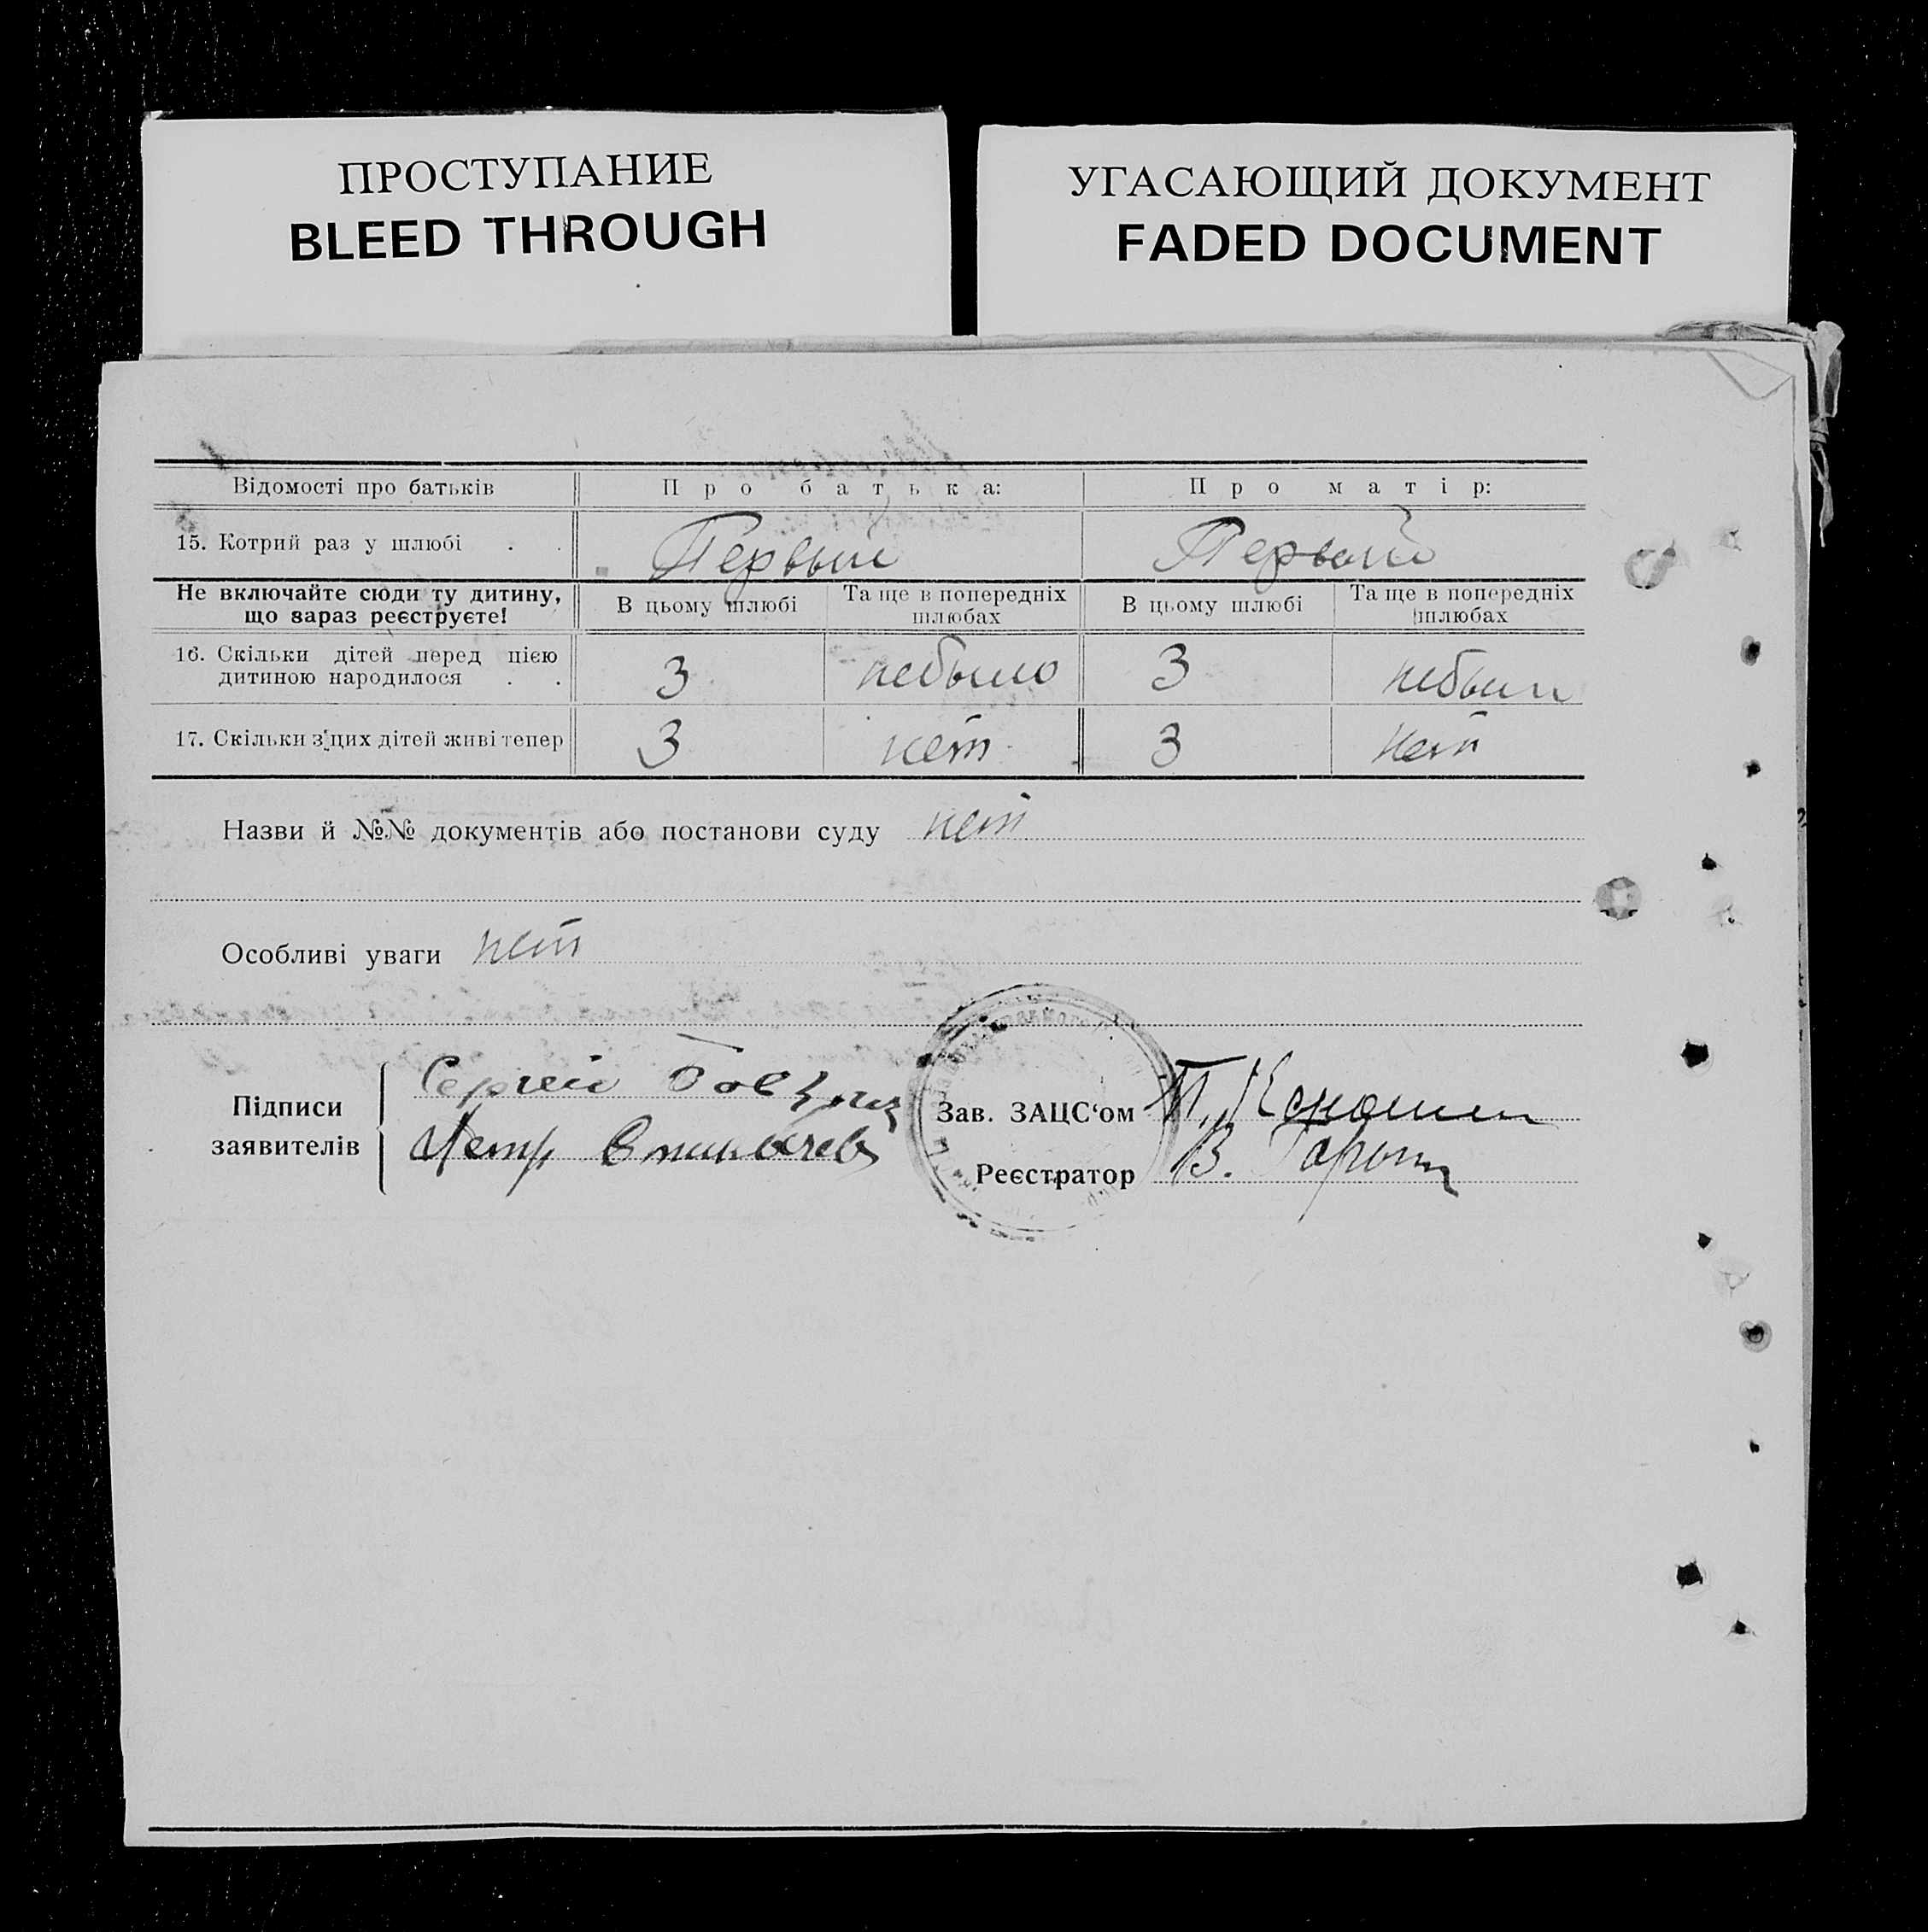 ПРОСТУПАНИЕ
BLEED THROUGH
УГАСАЮЩИЙ ДОКУМЕНТ
FADED DOCUMENT
Відомості про батьків Про батька: Про матір:
15. Котрий раз у шлюбі . . Первый Первый
Не включайте сюди ту дитину, що зараз реєструєте! В цьому шлюбі Та ще в попередніх шлюбах В цьому шлюбі Та ще в попередніх шлюбах
16. Скільки дітей перед цією
дитиною народилося . . 3 небыло 3
17. Скільки з цих дітей живі тепер 3 нет 3 нет
Назви й №№ документів або постанови суду нет
Особливі уваги нет
Підписи
заявителів
Сергей
Петр
Зав. ЗАЦС‘ом П.
Реєстратор В.